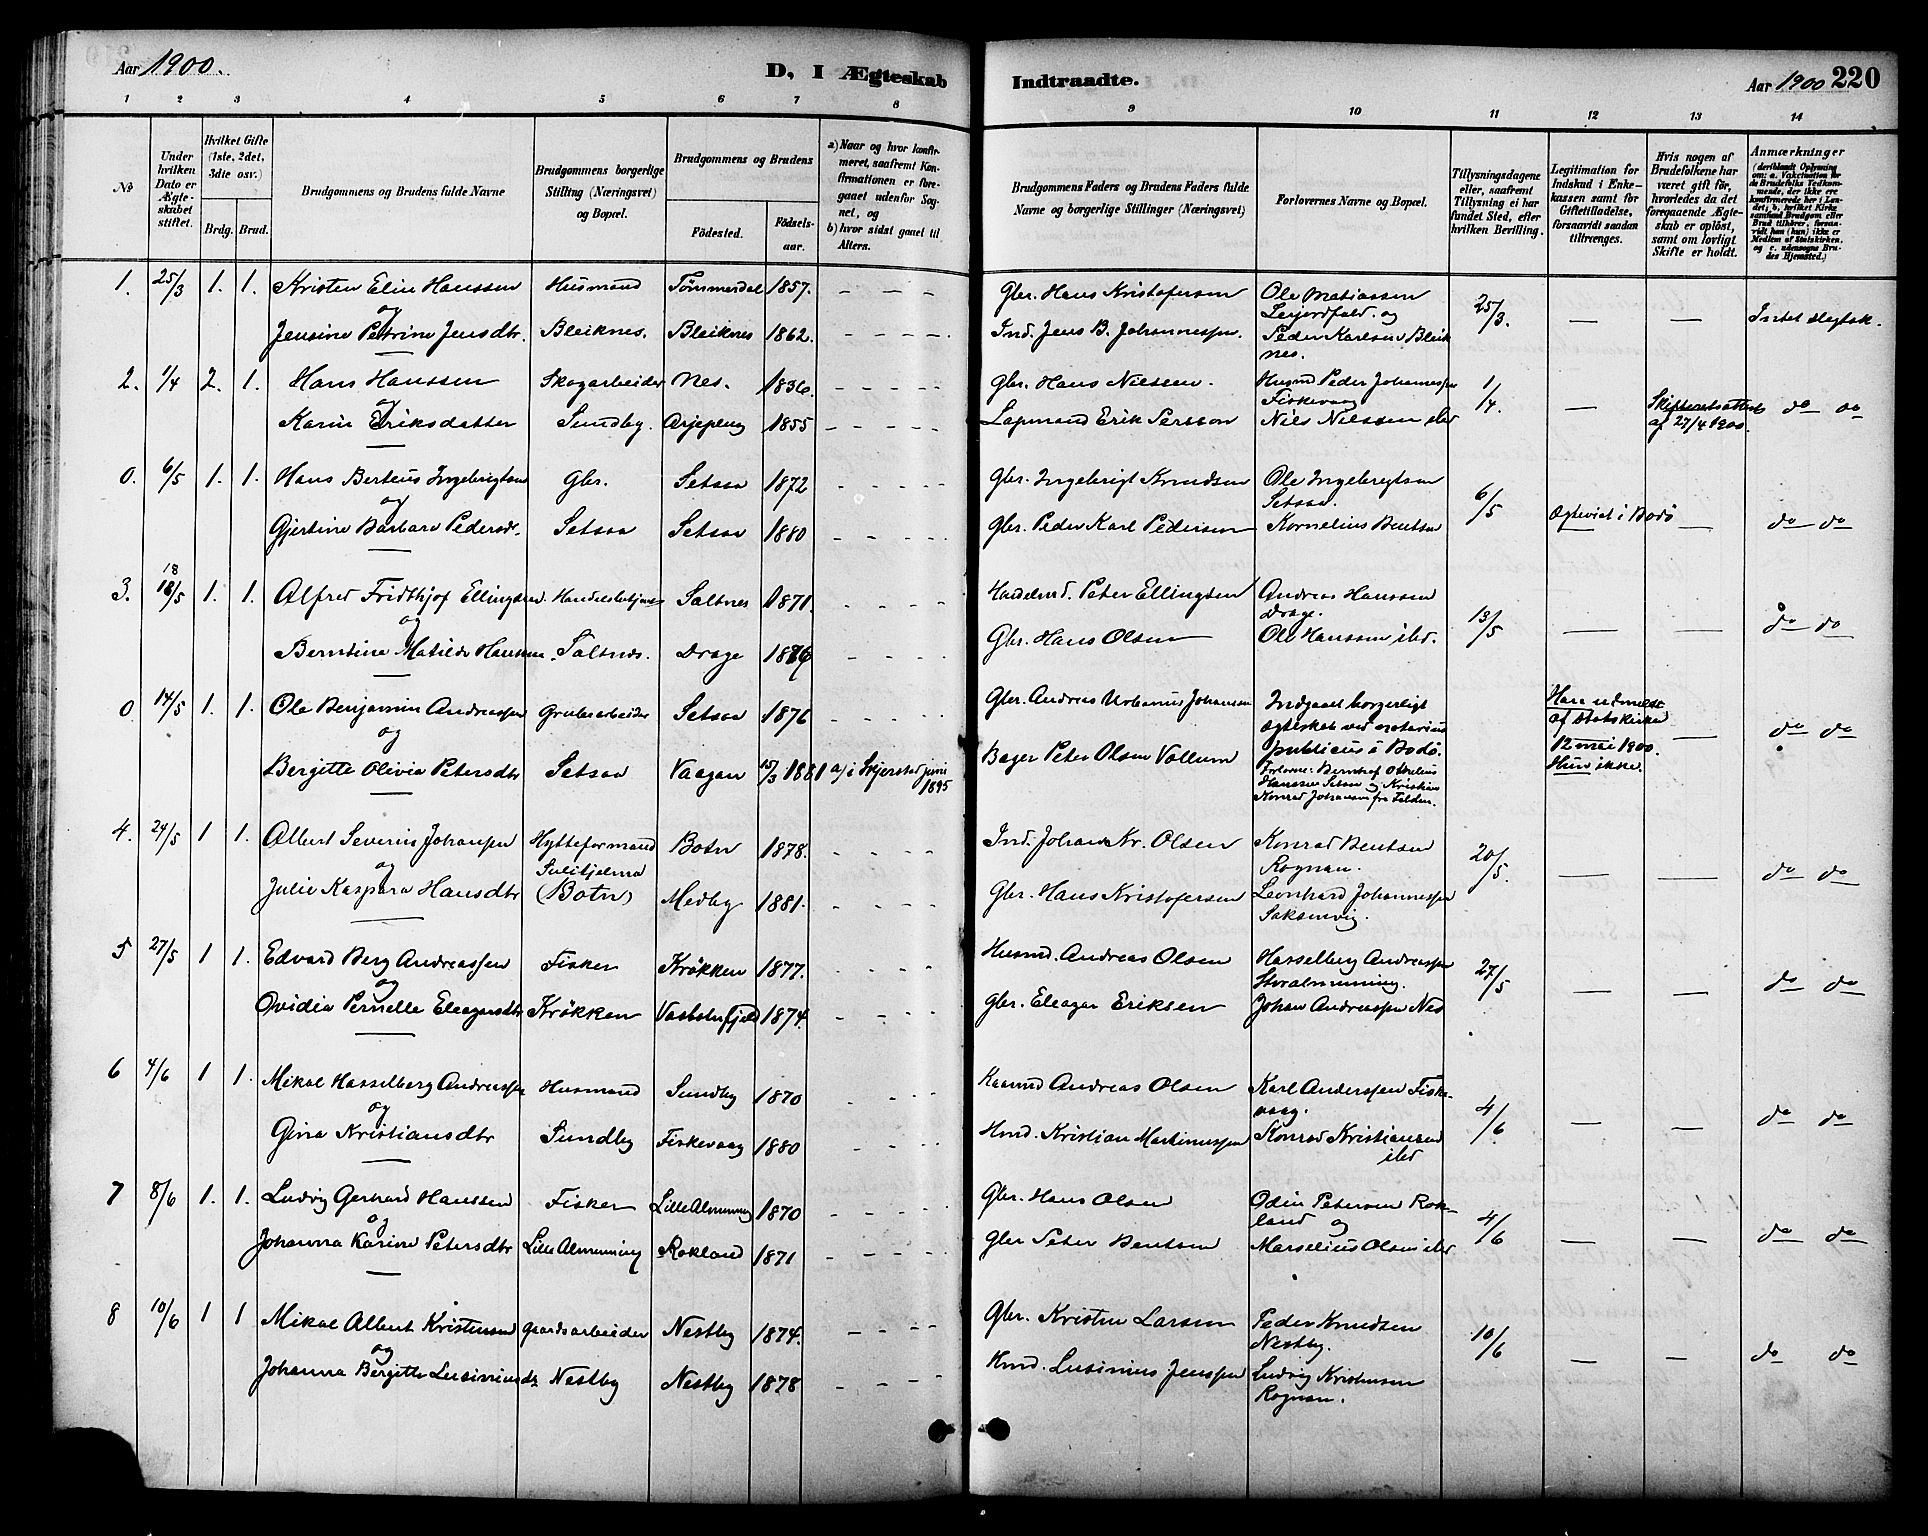 Aar 1900.
D, I Ægteskab
Indtraadte.
Aar 1900 220
1 2 3 4 5 6 7 8 9 10 11 12 13 14
No
Under hvilken Dato er Ægteskabet stiftet.
Hvilket Gifte (1ste, 2det, 3die osv.)
Brdg. Brud.
Brudgommens og Brudens fulde Navne
Brudgommens borgerlige Stilling (Næringsvei) og Bopæl.
Brudgommens og Brudens
Fødested.
Fødselsaar.
a) Naar og hvor konfirmeret, saafremt Konfirmationen er foregaaet udenfor Sognet, og
b) hvor sidst gaaet til Alters.
Brudgommens Faders og Brudens Faders fulde Navne og borgerlige Stillinger (Næringsvei)
Forlovernes Navne og Bopæl.
Tillysningsdagene eller, saafremt Tillysning ei har fundet Sted, efter hvilken Bevilling.
Legitimation for Indskud i Enkekassen samt for Giftetilladelse, forsaavidt saadan tiltrænges.
Hvis nogen af Brudefolkene har været gift før, hvorledes da det foregaaende Ægteskab er opløst, samt om lovligt Skifte er holdt.
Anmærkninger
(deriblandt Oplysning om: a. Vakcination for de Brudefolks Vedkommende, der ikke ere konfirmerede her i Landet; b. hvilket Kirkesamfund Brudgom eller Brud tilhører, forsavidt han (hun) ikke er Medlem af Statskirken, og c. udensogns Brudes Hjemsted.)
1. 25/3 1. 1. Kristen Elin Hanssen Husmand Tømmerdal 1857. – – – Gbr. Hans Kristofersen Ole Matiassen
og Leijordfald. og 25/3. — — Intet slegtsk.
Jensine Petrine Jensdtr. Bleiknes. Bleiknes 1862. – – – – Ind. Jens B. Johannessen. Peder Karlsen Bleik
nes.
2. 1/4 2. 1. Hans Hanssen Skogarbeider Nes. 1836. – – – – Gbr. Hans Nielsen. Husmd Peder Johannessen
og Fiskevaag 1/4 — Skifteretsattest do do
Karin Eriksdatter Sundby. Arjeplog 1855 – – – – Lapmand Erik Persson Niels Nielssen ibd af 27/4 1900.
0. 6/5 1. 1. Hans Berteus Ingebrigtsen Gbr. Setsaa 1872 – – – – Gbr. Ingebrigt Knudsen Ole Ingebrigtsen
og Setsaa. 6/5 Ægteviet i Bodø — do do
Gjertine Barbara Pedersd. Setsaa Setsaa 1880 – – – – Gbr. Peder Karl Pedersen Kornelius Bentsen
3. 18 18/5 1. 1. Alfred Fridthjof Ellingsen Handelsbetjent Saltnes 1871. – – – – Handelsmd. Peter Ellingsen Andreas Hanssen
og Drage. 13/5 — — do do
Berntine Matilde Hanssen. Saltnes. Drage 1876 – – – – Gbr. Hans Olsen Ole Hanssen ibd.
0 14/5 1. 1. Ole Benjamin Andreassen Grubearbeider Setsaa 1876 – – – – Gbr. Andreas Urbanus Johansen Indgaaet borgerligt Han udmeldt
og ægteskab ved notarius af statskirken
Bergitte Olivia Petersdtr Setsaa Vaagan 15/3 1881 a) i Skjerstad juni 1895 Bager Peter Olsen Vollum publicus i Bodø. 12 mai 1900. — do do
Forlovere: Bernhof Othelius Hun ikke.
Hanssen Setsaa og Kristian
Konrad Johansen fra
4. 24/5 1 1. Albert Severin Johansen Hytteformand Botn 1878. – – – – Ind. Johan Kr. Olsen Konrad Bentsen
og Sulitjelma Rognan. 20/5. — — do do
Julie Kaspara Hansdtr (Botn) Medby 1881. – – – – Gbr. Hans Kristofersen Leonhard Johannessen
Saksenvig.
5 27/5 1 1. Edvard Berg Andreassen Fisker Krøkken 1877. – – – – Husmd. Andreas Olsen Hasselberg Andreassen
og Storalmenning. 27/5 — — do do
Ovidia Pernelle Eleazersdtr Krøkken Vasbotnfjeld 1874. – – – – Gbr. Eleazar Eriksen Johan Andreassen Nes
6 4/6 1 1. Mikal Hasselberg Andreassen Husmand Sundby 1870 – – – – Andreas Olsen Karl Anderssen Fiske-
og vaag. 4/6 — — do do
Gina Kristiansdtr Sundby Fiskevaag 1880 – – – – Hmd. Kristian Martinussen Konrad Kristiansen
ibd
7 8/6 1. 1. Ludvig Gerhard Hanssen Fisker Lille Almenning 1870 – – – – Gbr. Hans Olsen Odin Petersen Rok-
og land og 4/6 — — do do
Johanna Karine Petersdtr Lille Almenning Rokland 1871 – – – – Gbr Peter Bentsen Marselius Olsen ibd
8 10/6 1 1 Mikal Albert Kristensen gaardsarbeider Nestby 1874. – – – – Gbr. Kristen Larsen Peder Knudsen
og Nestby. 10/6 — — do do
Johanna Bergitte Lusiniusd. Nestby Nestby 1878 – – – – Hmd. Lusinius Jenssen Ludvig Kristensen
Rognan.